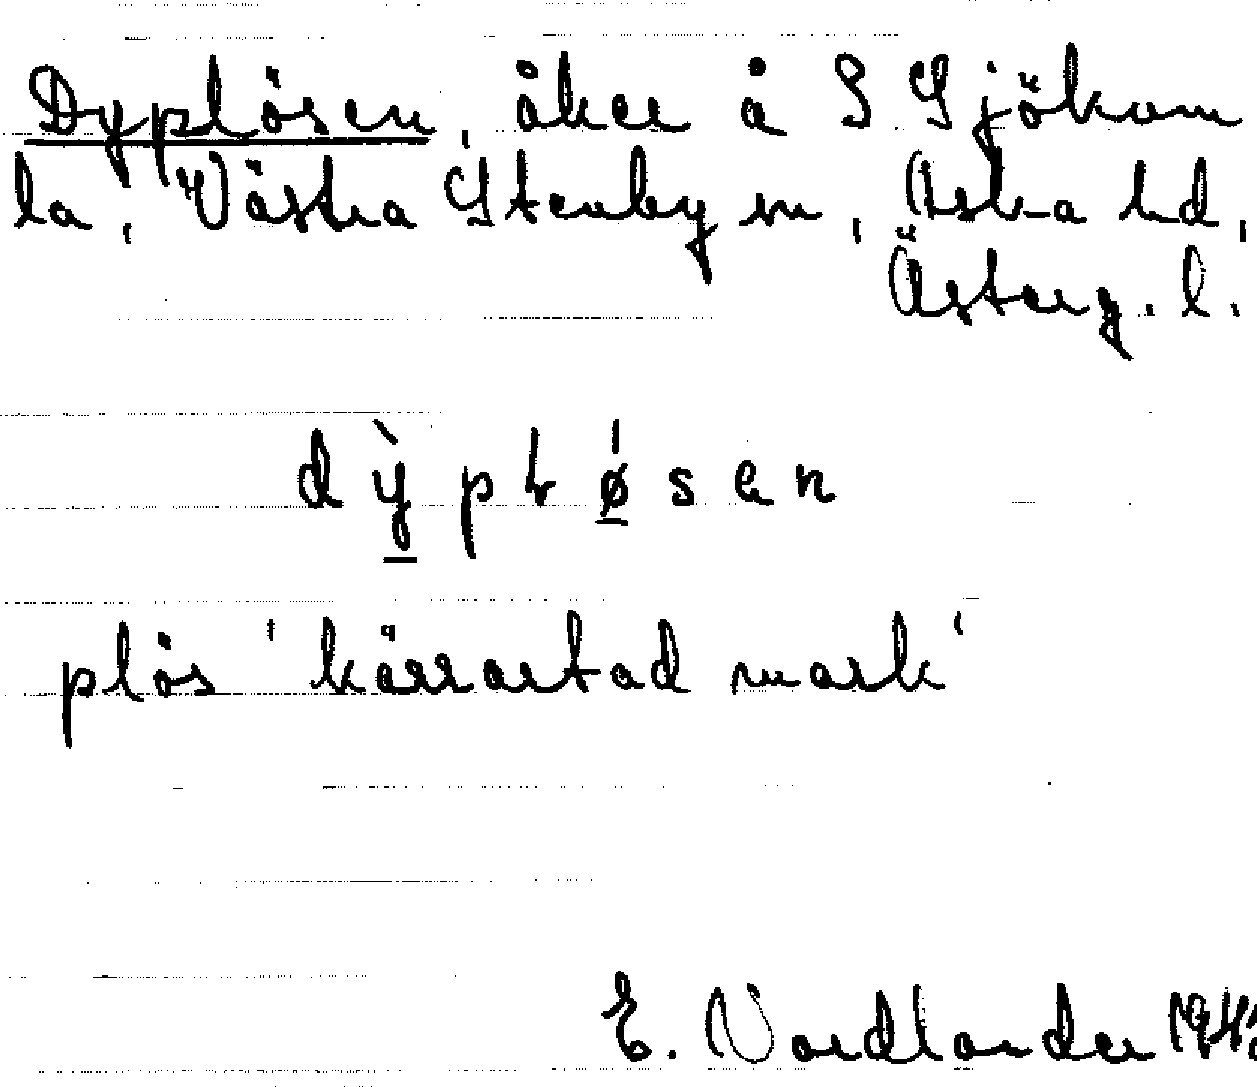 Dyplösen, åker å S Sjökum
la, Västra Stenby sn, Aska hd,
Österg. l.
dỳpłǿsen
plös 'kärrartad mark'
E. Nordlander